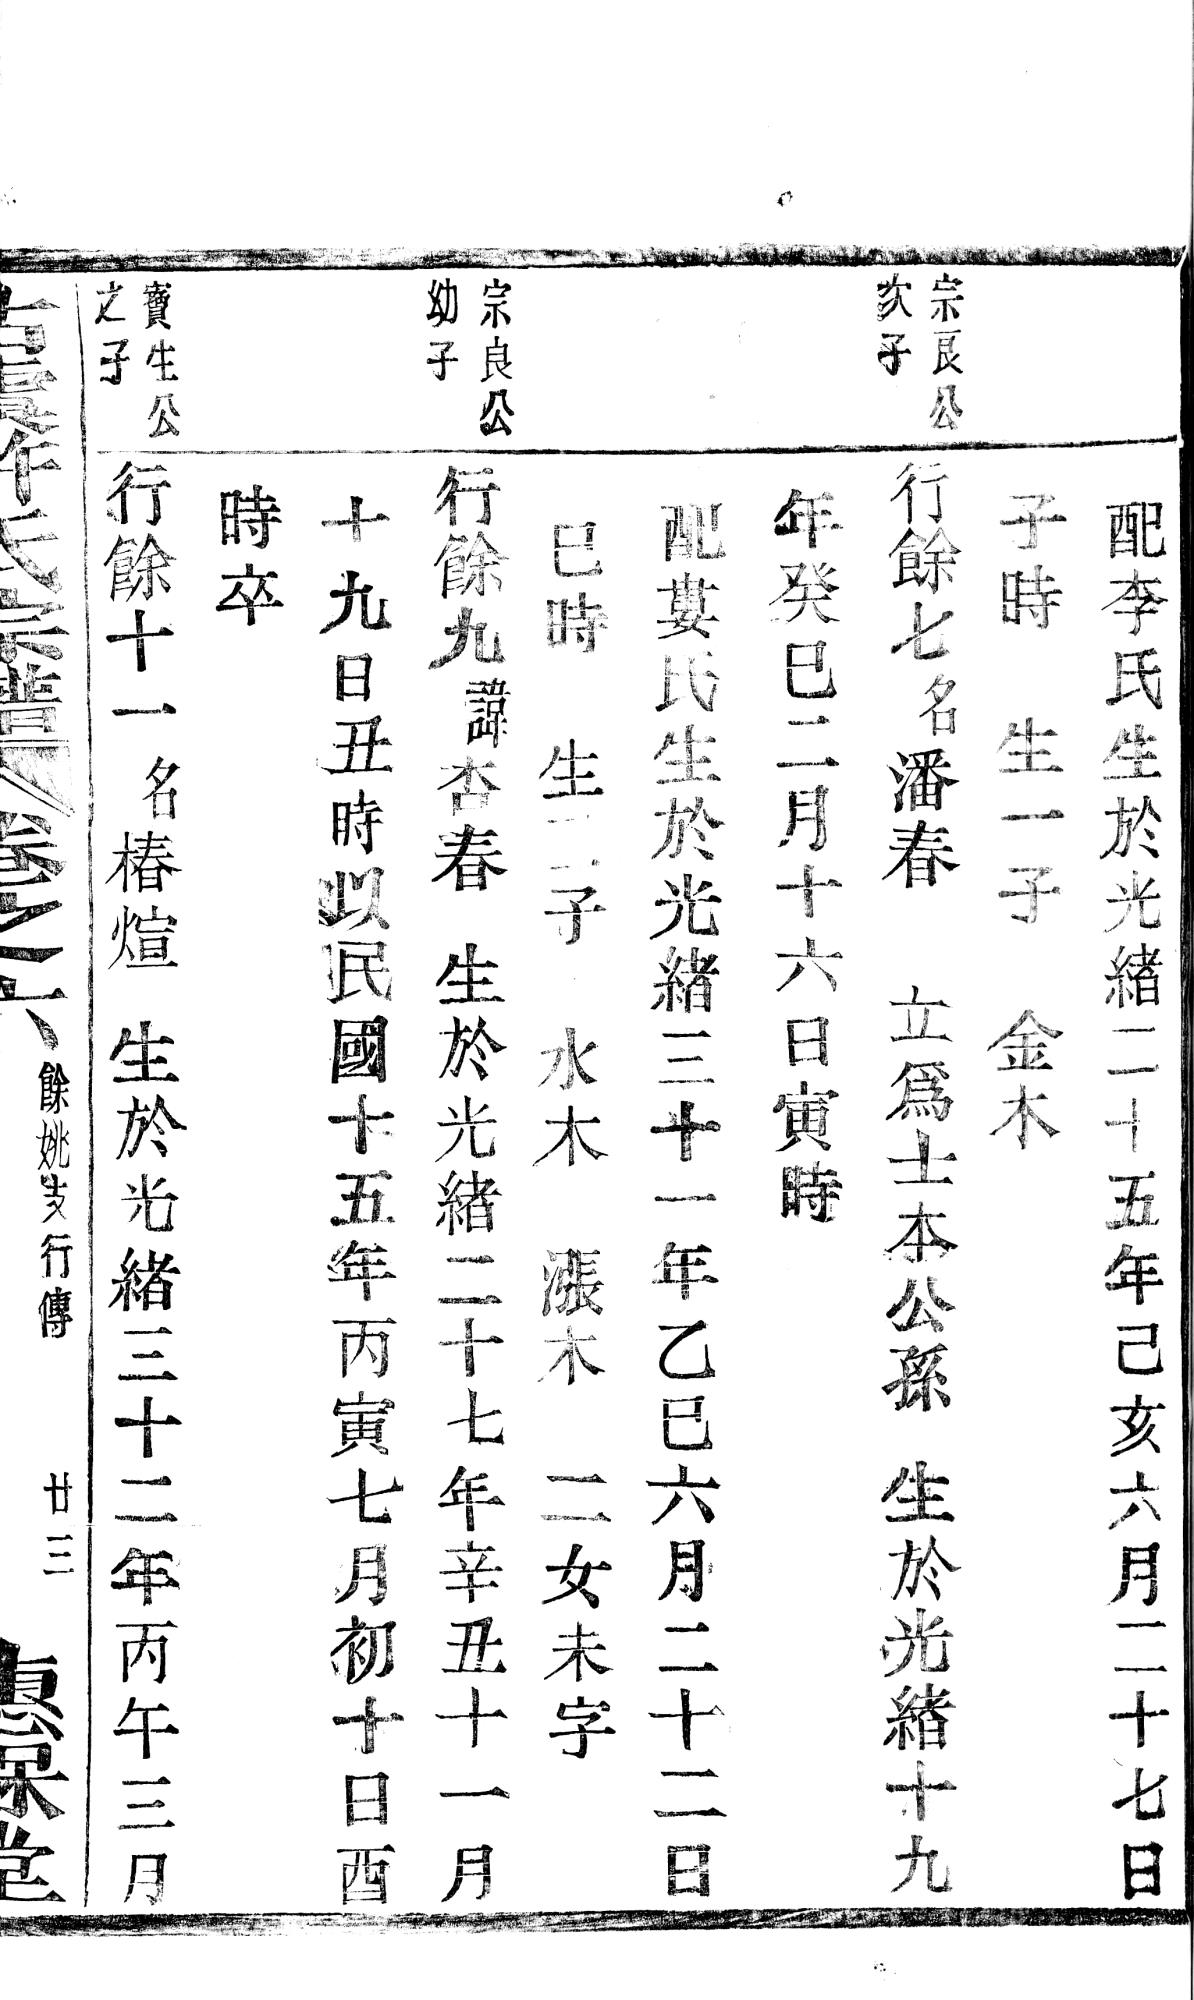 配李氏生於光緒二十五年己亥六月二十七日
子時　生一子　金木
宗良公
次子
行餘七名潘春　立爲士本公孫　生於光緒十九
年癸巳二月十六日寅時
配婁氏生於光緒三十一年乙巳六月二十二日
巳時　生二子　水木　漲木　二女未字
宗良公
幼子
行餘九諱杏春　生於光緒二十七年辛丑十一月
十九日丑時以民國十五年丙寅七月初十日酉
時卒
寶生公
之子
行餘十一名椿煊　生於光緒三十二年丙午三月
氏宗譜　卷之六　餘姚支行傳　廿三